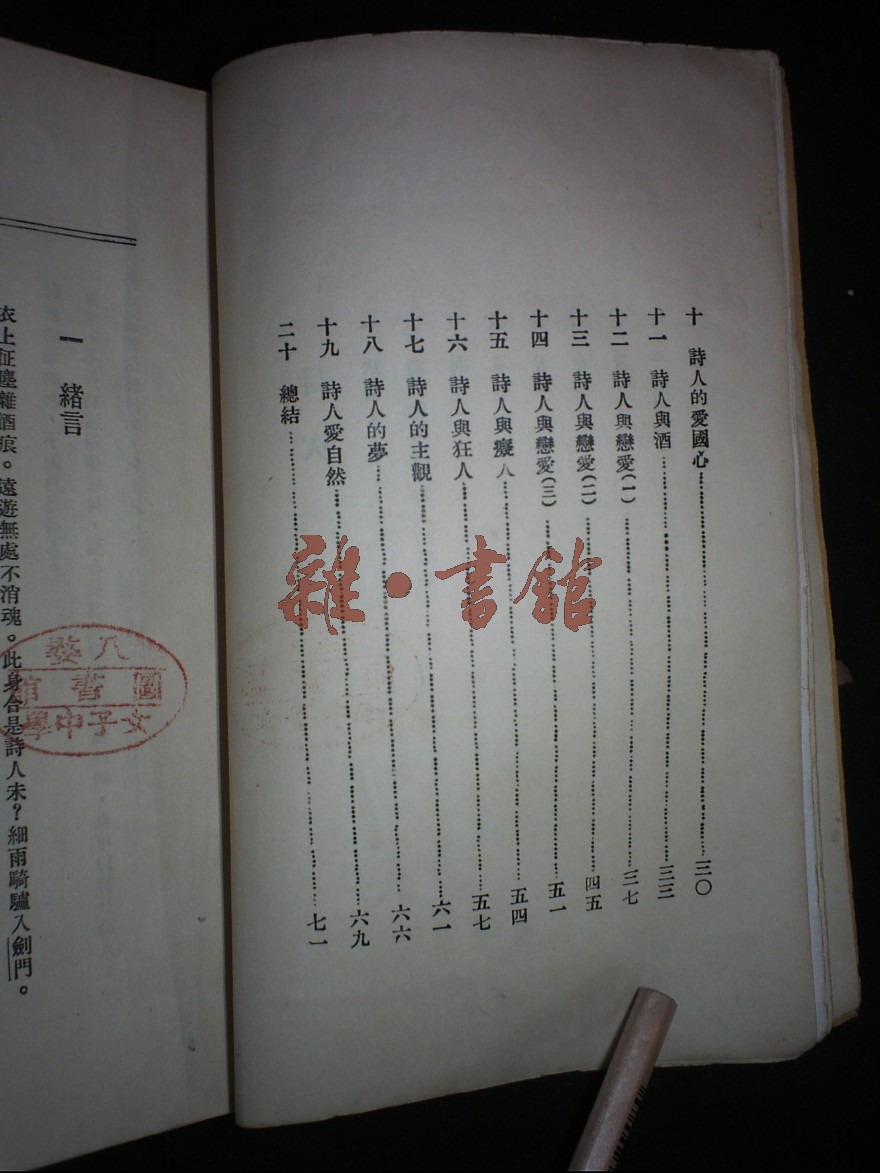 十　詩人的愛國心……三〇
十一　詩人與酒……三三
十二　詩人與戀愛(一)……三七
十三　詩人與戀愛(二)……四五
十四　詩人與戀愛(三)……五一
十五　詩人與癡人……五四
十六　詩人與狂人……五七
十七　詩人的主觀……六一
十八　詩人的夢……六六
十九　詩人愛自然……六九
二十　總結……七一
雜·書館
一　緒言
衣上征塵雜酒痕。遠遊無處不消魂。此身合是詩人未？細雨騎驢入劍門。
八婺
圖書館
女子中學